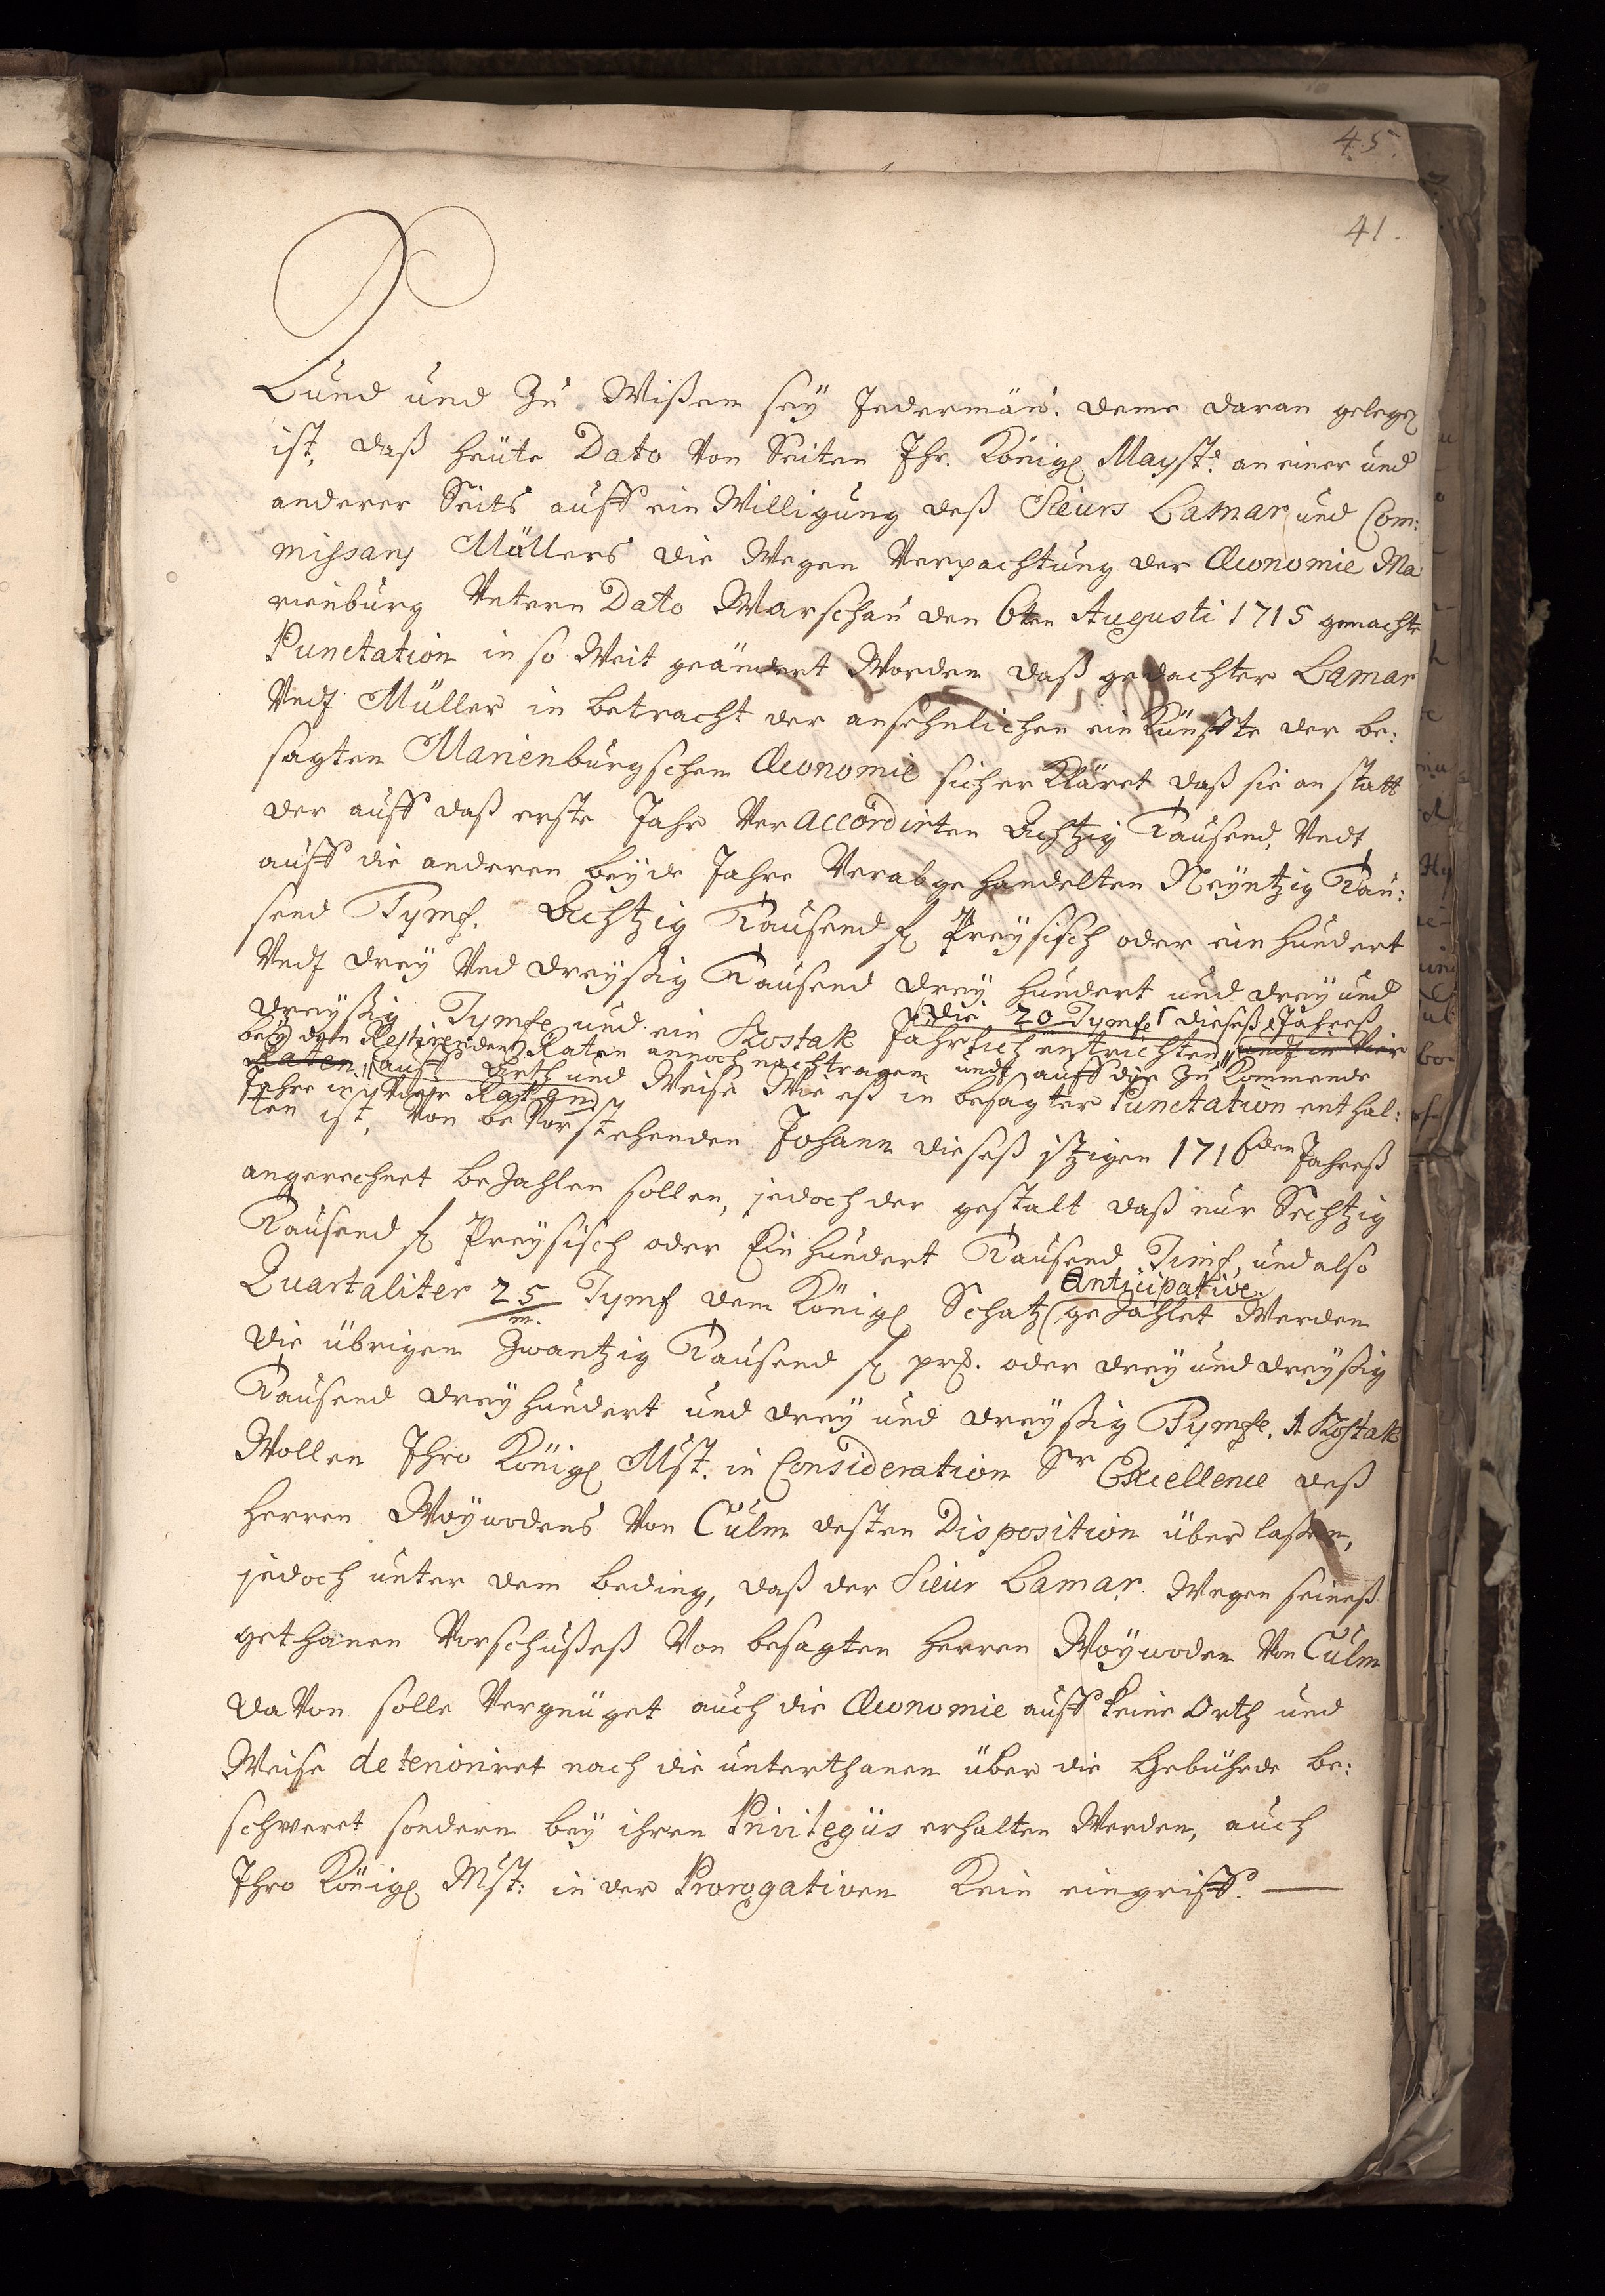 45.
41.
Kund und Zu Wißen seÿ Jedermän: deme daran gelegen
ist, daß heüte Dato Von Seiten Ihr. Königl Mayst: an einer und
anderer Seits auff ein Willigung deß Sieurs Lamar und Com:
missarij Müllers die Wegen Verpachtung der Œconomie Ma
rienburg Untern Dato Warschau den 6ten Augusti 1715 gemachte
Punctation in so Weit geändert Worden daß gedachter Lamar
Undt Müller in betracht der ansehnlichen ein Künffte der be:
sagten Marienburgschen Œconomie sich er Kläret daß sie an statt
der auff daß erste Jahr Ver accordirten Achtzig Tausend, Undt
auff die anderen beÿde Jahre Verabge handelten Neÿntzig Tau:
send Tymf. Achtzig Tausend fl Preÿsisch oder ein hundert
Undt dreÿ Und dreÿßig Tausend dreÿ hundert und dreÿ und
dreÿßig Tymfe und ein Szostak Jährlich entrichten, undt in Vier
die 20 Tymfe dieseß Jahreß
beÿ den Restirenden Raten annoch nachtragen undt auff die zu Kommende
Raten, auff Arth und Weise Wie eß in besagter Punctation enthal:
Jahre in Vier Raten
ten ist, Von be Vorstehenden Johann dieseß itzigen 1716den Jahreß
angerechnet beZahlen sollen, jedoch der gestalt daß nur Sechtzig
Tausend fl Preÿsisch oder Ein hundert Tausend Timf, und also
Quartaliter 25 Tymf dem Königl Schatz geZahlet Werden
m.
Anticipative
die übrigen Zwantzig Tausend fl prß. oder dreÿ und dreÿßig
Tausend dreÿ hundert und dreÿ und dreÿßig Tymfe, 1 Szostak
Wollen Ihro Königl Mst. in Consideration Sr Excellence deß
Herren Woÿwodens Von Culm desten Disposition über laßen,
jedoch unter dem beding, daß der Sieur Lamar Wegen seineß
gethanen Vorschußeß Von besagten Herren Woÿwoden Von Culm
daVon solle Vergnüget auch die Œconomie auff keine Arth und
Weise deterioriret noch die unterthanen über die Gebührde be:
schweret sondern beÿ ihren Privilegiis erhalten Werden, auch
Ihro Königl Mst: in der Prorogativen Kein eingriff.